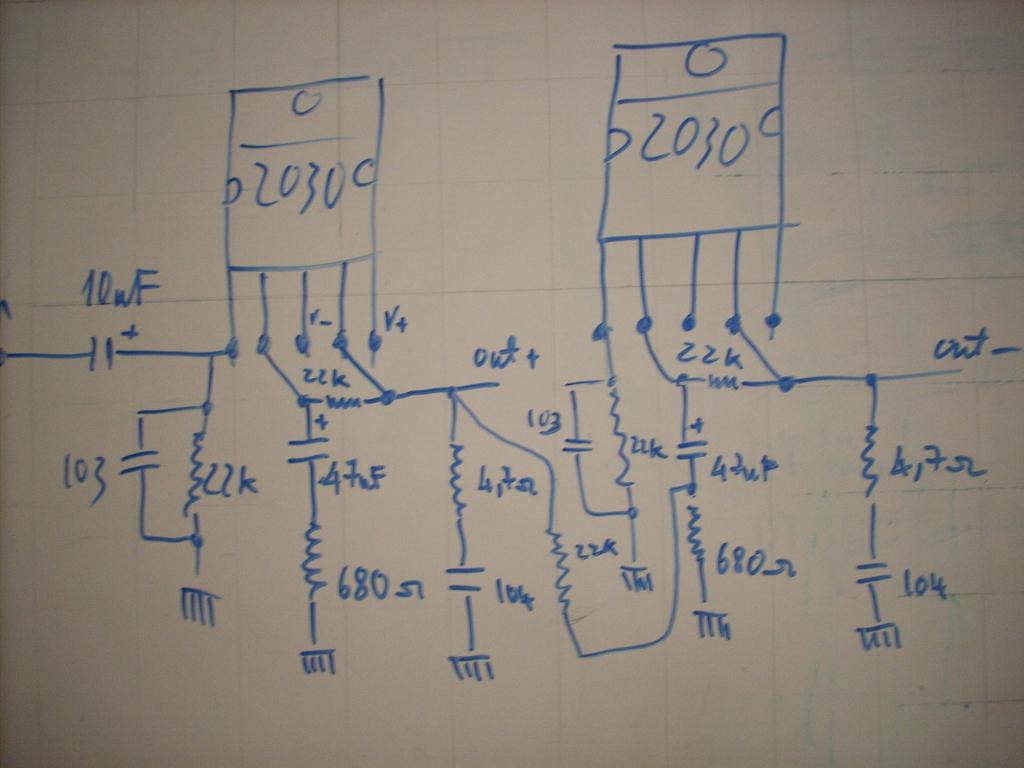 2030
2030
10uF
+
V-
V+
22k
out+
22k
out-
103
22k
+
47uF
4,7Ω
103
22k
+
47uF
4,7Ω
680Ω
104
22k
680Ω
104